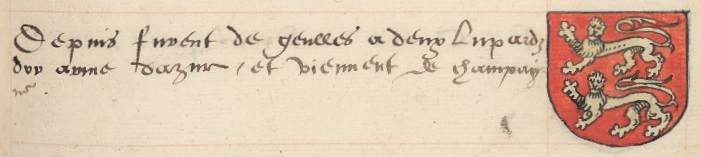 Depuis furent de geulles a deux lupardz
dor arme dazur, et viennent de champay
ne